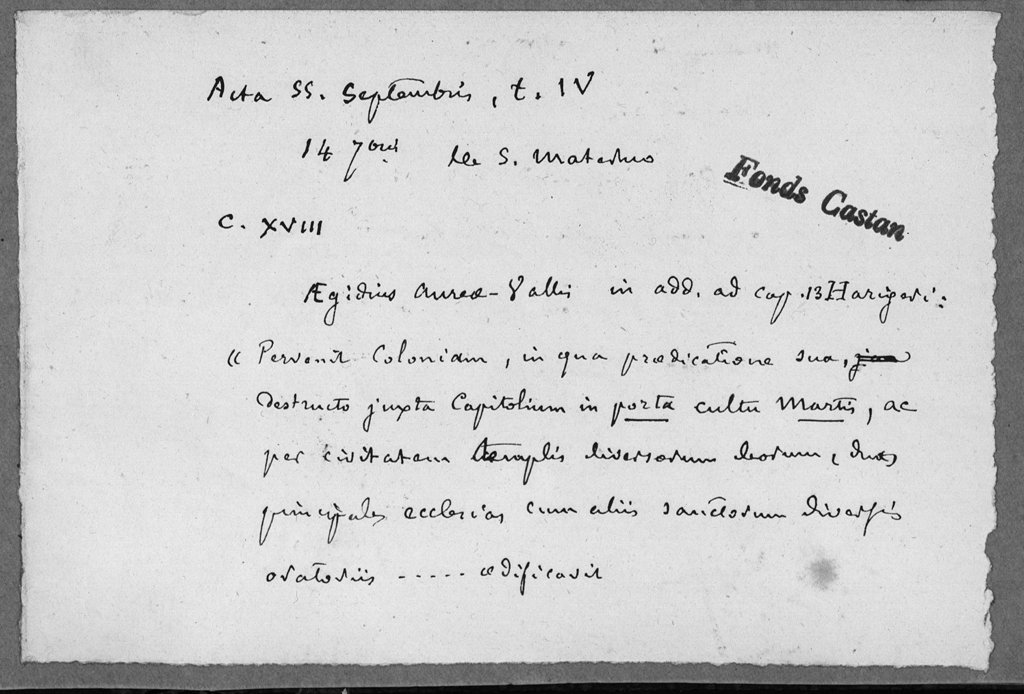 Acta SS. Septembris, t. IV
14 7bris de S. Materno
Fonds Castan
C. XVIII
Ægidius Aureæ-Vallis in add. ad cap. 13 Harigeri :
« Pervenit Coloniam, in qua prædicatione sua,
destructo juxta Capitolium in porta cultu Martis, ac
per civitatem templis diversorum deorum, duas
principales ecclesias cum aliis sanctorum diversis
oratoriis ----- ædificavit